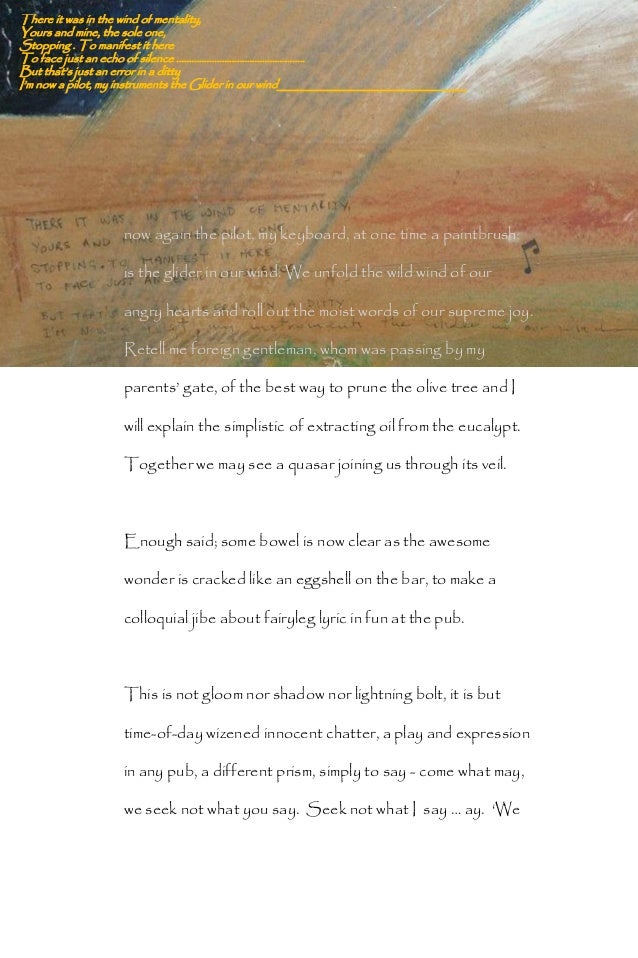 There it was in the wind of mentality,
Yours and mine, the sole one,
Stopping . To manifest it here
To face just an echo of silence ......................................................
But that's just an error in a ditty
I'm now a pilot, my instruments the Glider in our wind______________________________
THERE IT WAS. IN THE WIND OF MENTALITY,
YOURS AND
STOPPING. TO MANIFEST IT HERE
TO FACE JUST AN
BUT THAT'S IN A DITTY
I'M NOW instruments the Glider in our wind
now again the pilot, my keyboard, at one time a paintbrush;
is the glider in our wind. We unfold the wild wind of our
angry hearts and roll out the moist words of our supreme joy.
Retell me foreign gentleman, whom was passing by my
parents' gate, of the best way to prune the olive tree and I
will explain the simplistic of extracting oil from the eucalypt.
Together we may see a quasar joining us through its veil.
Enough said; some bowel is now clear as the awesome
wonder is cracked like an eggshell on the bar, to make a
colloquial jibe about fairyleg lyric in fun at the pub.
This is not gloom nor shadow nor lightning bolt, it is but
time-of-day wizened innocent chatter, a play and expression
in any pub, a different prism, simply to say - come what may,
we seek not what you say. Seek not what I say ... ay. 'We